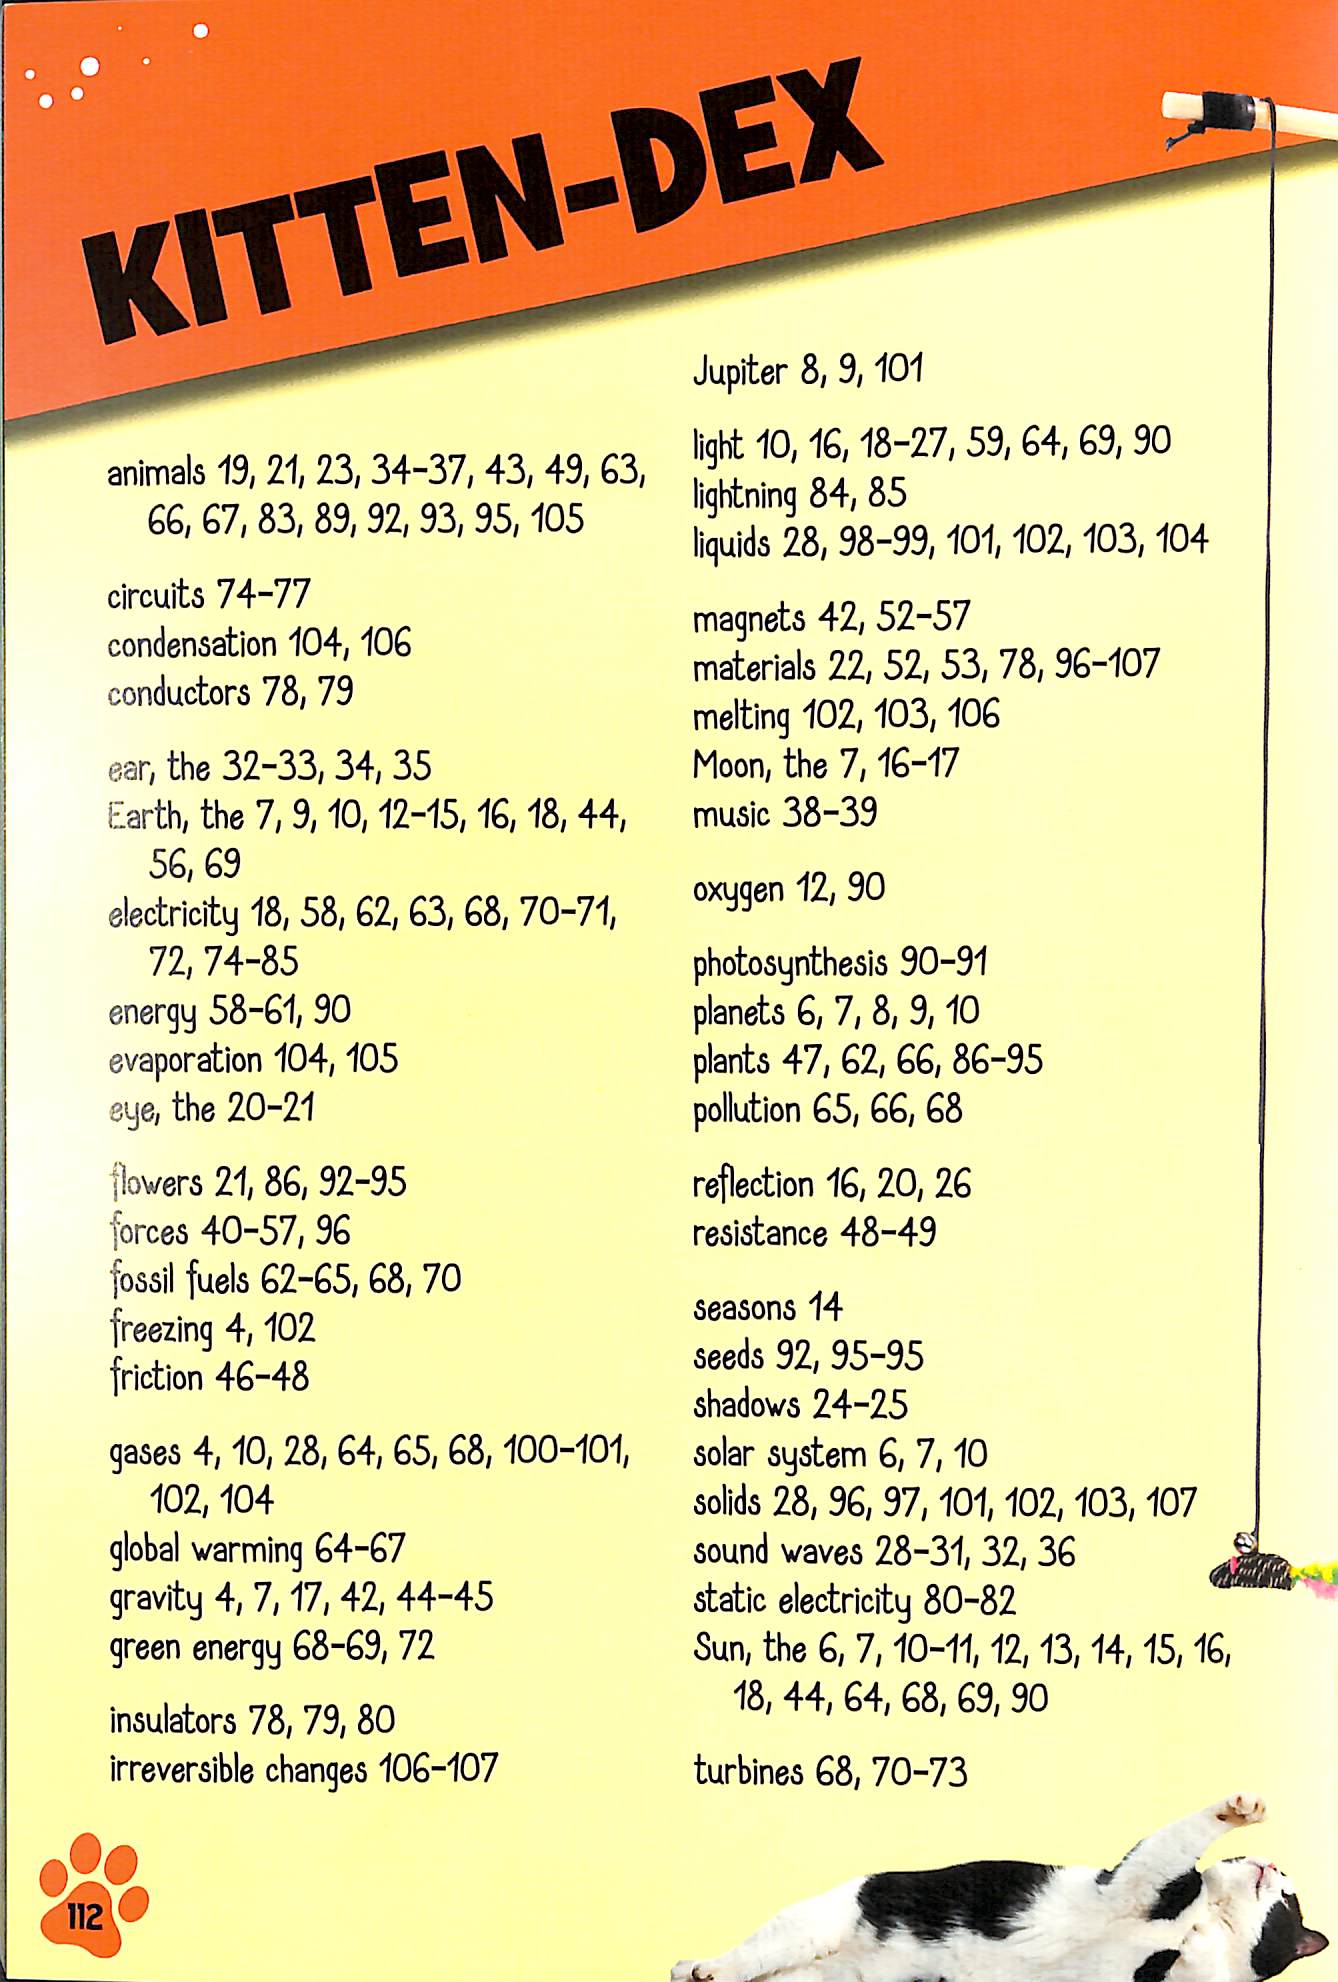 KITTEN-DEX
animals 19, 21, 23, 34–37, 43, 49, 63,
66, 67, 83, 89, 92, 93, 95, 105
circuits 74–77
condensation 104, 106
conductors 78, 79
ear, the 32–33, 34, 35
Earth, the 7, 9, 10, 12–15, 16, 18, 44,
56, 69
electricity 18, 58, 62, 63, 68, 70–71,
72, 74–85
energy 58–61, 90
evaporation 104, 105
eye, the 20–21
flowers 21, 86, 92–95
forces 40–57, 96
fossil fuels 62–65, 68, 70
freezing 4, 102
friction 46–48
gases 4, 10, 28, 64, 65, 68, 100–101,
102, 104
global warming 64–67
gravity 4, 7, 17, 42, 44–45
green energy 68–69, 72
insulators 78, 79, 80
irreversible changes 106–107
Jupiter 8, 9, 101
light 10, 16, 18–27, 59, 64, 69, 90
lightning 84, 85
liquids 28, 98–99, 101, 102, 103, 104
magnets 42, 52–57
materials 22, 52, 53, 78, 96–107
melting 102, 103, 106
Moon, the 7, 16–17
music 38–39
oxygen 12, 90
photosynthesis 90–91
planets 6, 7, 8, 9, 10
plants 47, 62, 66, 86–95
pollution 65, 66, 68
reflection 16, 20, 26
resistance 48–49
seasons 14
seeds 92, 95–95
shadows 24–25
solar system 6, 7, 10
solids 28, 96, 97, 101, 102, 103, 107
sound waves 28–31, 32, 36
static electricity 80–82
Sun, the 6, 7, 10–11, 12, 13, 14, 15, 16,
18, 44, 64, 68, 69, 90
turbines 68, 70–73
112